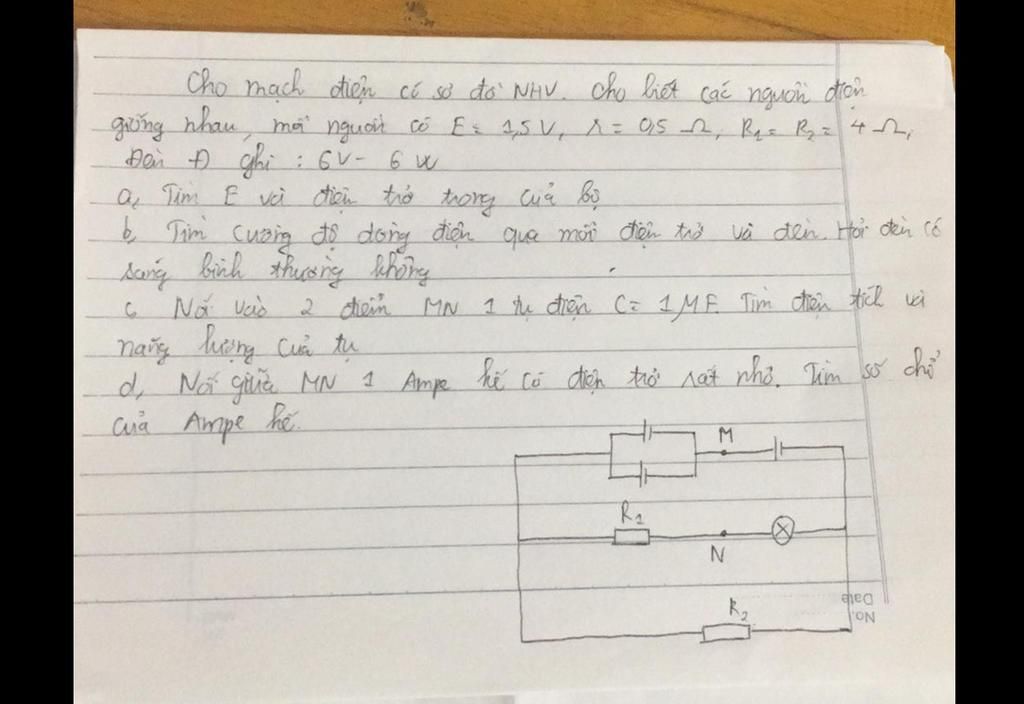 Cho mạch điện có sơ đồ NHV. Cho biết các nguồn điện
giống nhau, mỗi nguồn có E = 1,5 V, r = 0,5 Ω, R1 = R2 = 4 Ω,
Đèn Đ ghi : 6V - 6 W
a, Tìm E và điện trở trong của bộ
b, Tìm cường độ dòng điện qua mỗi điện trở và đèn. Hỏi đèn có
sáng bình thường không
c, Nối vào 2 điểm MN 1 tụ điện C = 1 MF. Tìm điện tích và
năng lượng của tụ
d, Nối giữa MN 1 Ampe kế có điện trở rất nhỏ. Tìm số chỉ
của Ampe kế.
M
R1
N
R2
Date
No.